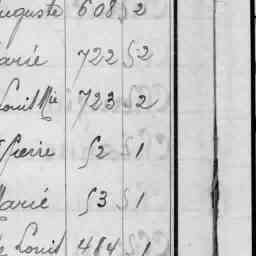 Auguste 608 2
Marié 722 2
Louis Mie 723 2
Pierre 52 1
Marié 53 1
Louis 484 1